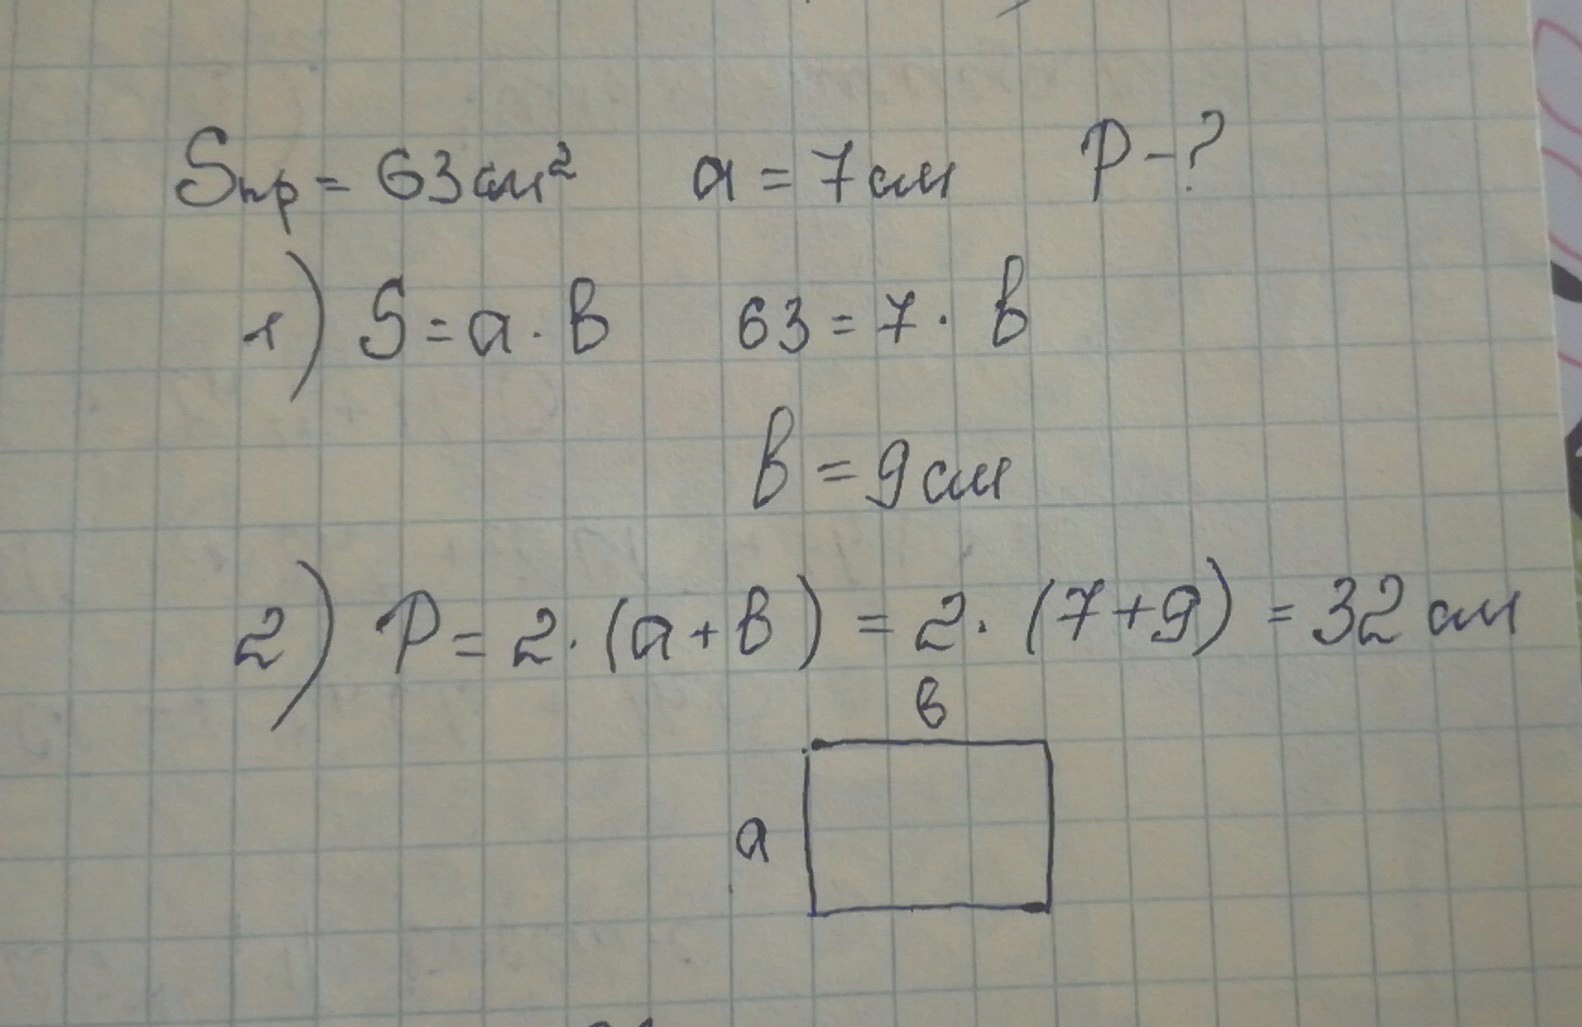 Sпр = 63 см² a = 7 см P - ?
1) S = a · в 63 = 7 · в
в = 9 см
2) P = 2 · (a + в) = 2 · (7 + 9) = 32 см
в
a